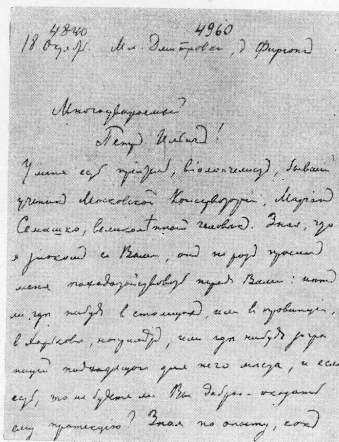 4840 4960
18 Октяб. Мл. Дмитровка, д. Фирганг
Многоуважаемый
Петр Ильич!
У меня есть приятель, виолончелист, бывший
ученик Московской Консерватории, Мариан
Семашко, великолепный человек. Зная, что
я знаком с Вами, он не раз просил
меня походатайствовать перед Вами: нет
ли где-нибудь в столицах, или в провинции,
в Харькове, например, или где нибудь
подходящего для него места, и если
есть, то не будете ли Вы добры оказать
ему протекцию? Зная по опыту, как